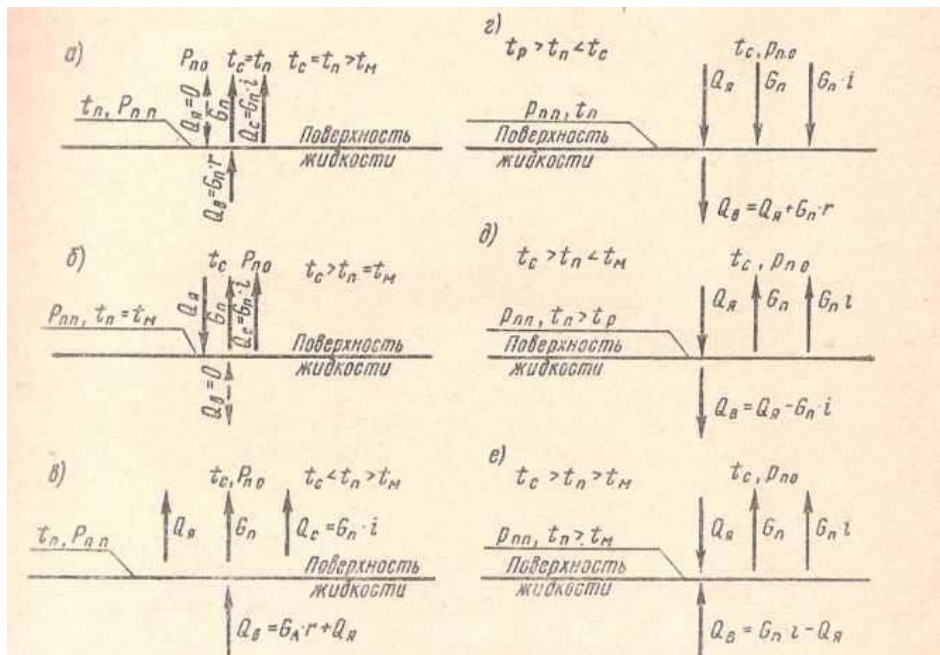 а)
Pпо tс=tп tс=tп>tм
tп, Pпп
Qя=0
Gп
Qс=Gп·i
Поверхность
жидкости
Qв=Gп·r
б)
tс Pпо tс>tп=tм
Pпп, tп=tм
Qя
Gп
Qс=Gп·i
Поверхность
жидкости
Qв=0
в)
tс, Pпо tс<tп>tм
Qя Gп Qс=Gп·i
tп, Pпп
Поверхность
жидкости
Qв=Gп·r+Qя
г)
tр>tп<tс tс, pпо
Qя Gп Gп·i
pпп, tп
Поверхность
жидкости
Qв=Qя+Gп·r
д)
tс>tп<tм tс, pпо
Qя Gп Gп i
pпп, tп>tр
Поверхность
жидкости
Qв=Qя−Gп·i
е)
tс>tп>tм tс, pпо
Qя Gп Gп i
pпп, tп>tм
Поверхность
жидкости
Qв=Gп·i−Qя